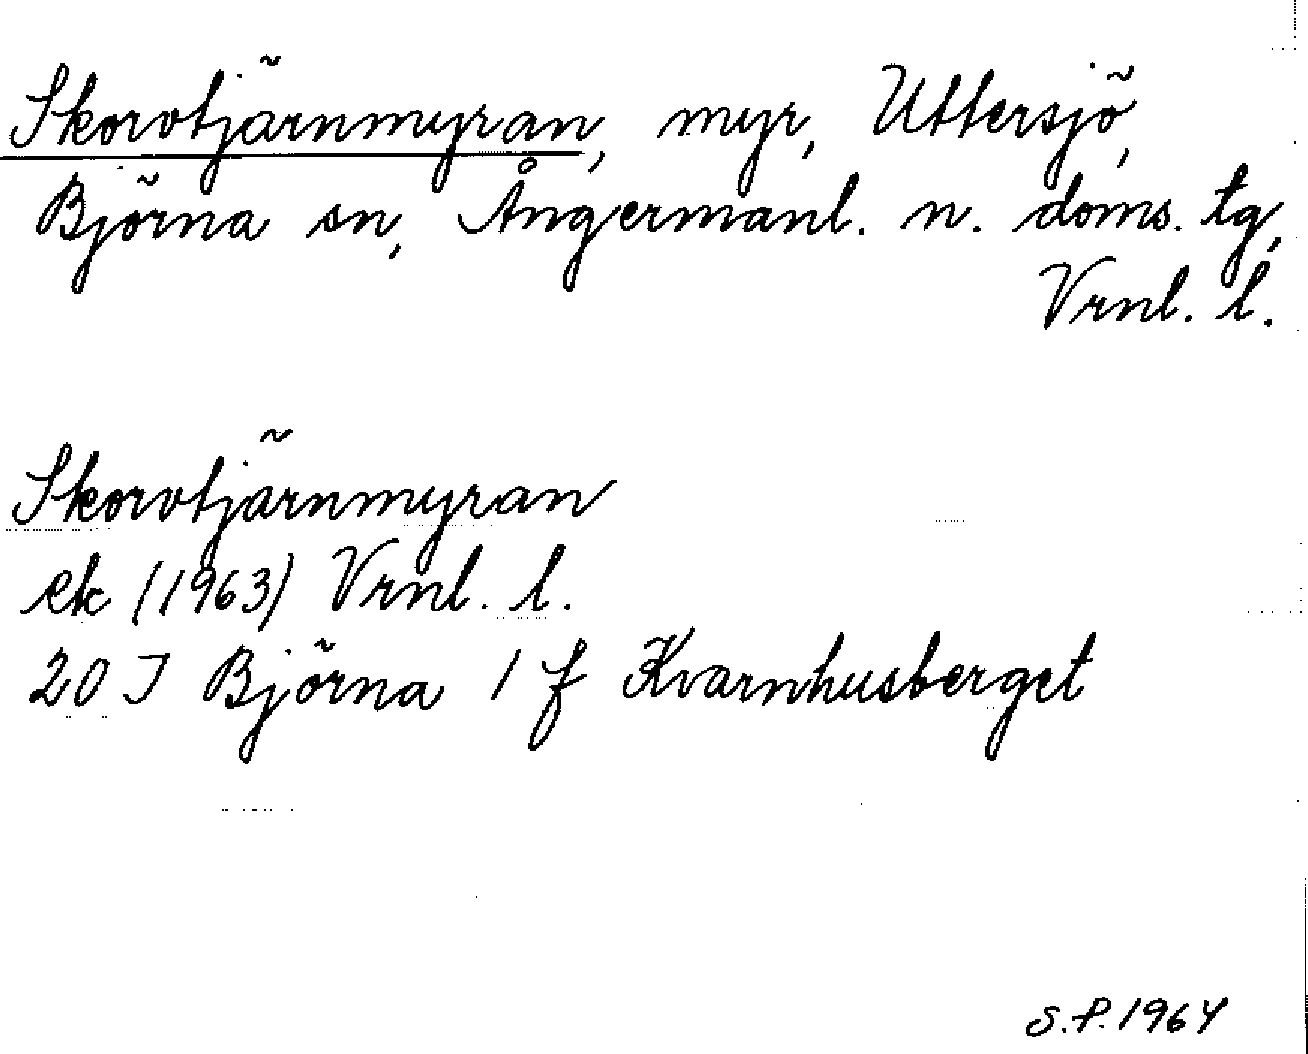 Skorvtjärnmyran, myr, Uttersjö,
Björna sn, Ångermanl. n. doms. tg,
Vrnl. l.
Skorvtjärnmyran
ek (1963) Vrnl. l.
20 I Björna 1 f Kvarnhusberget
S.P. 1964